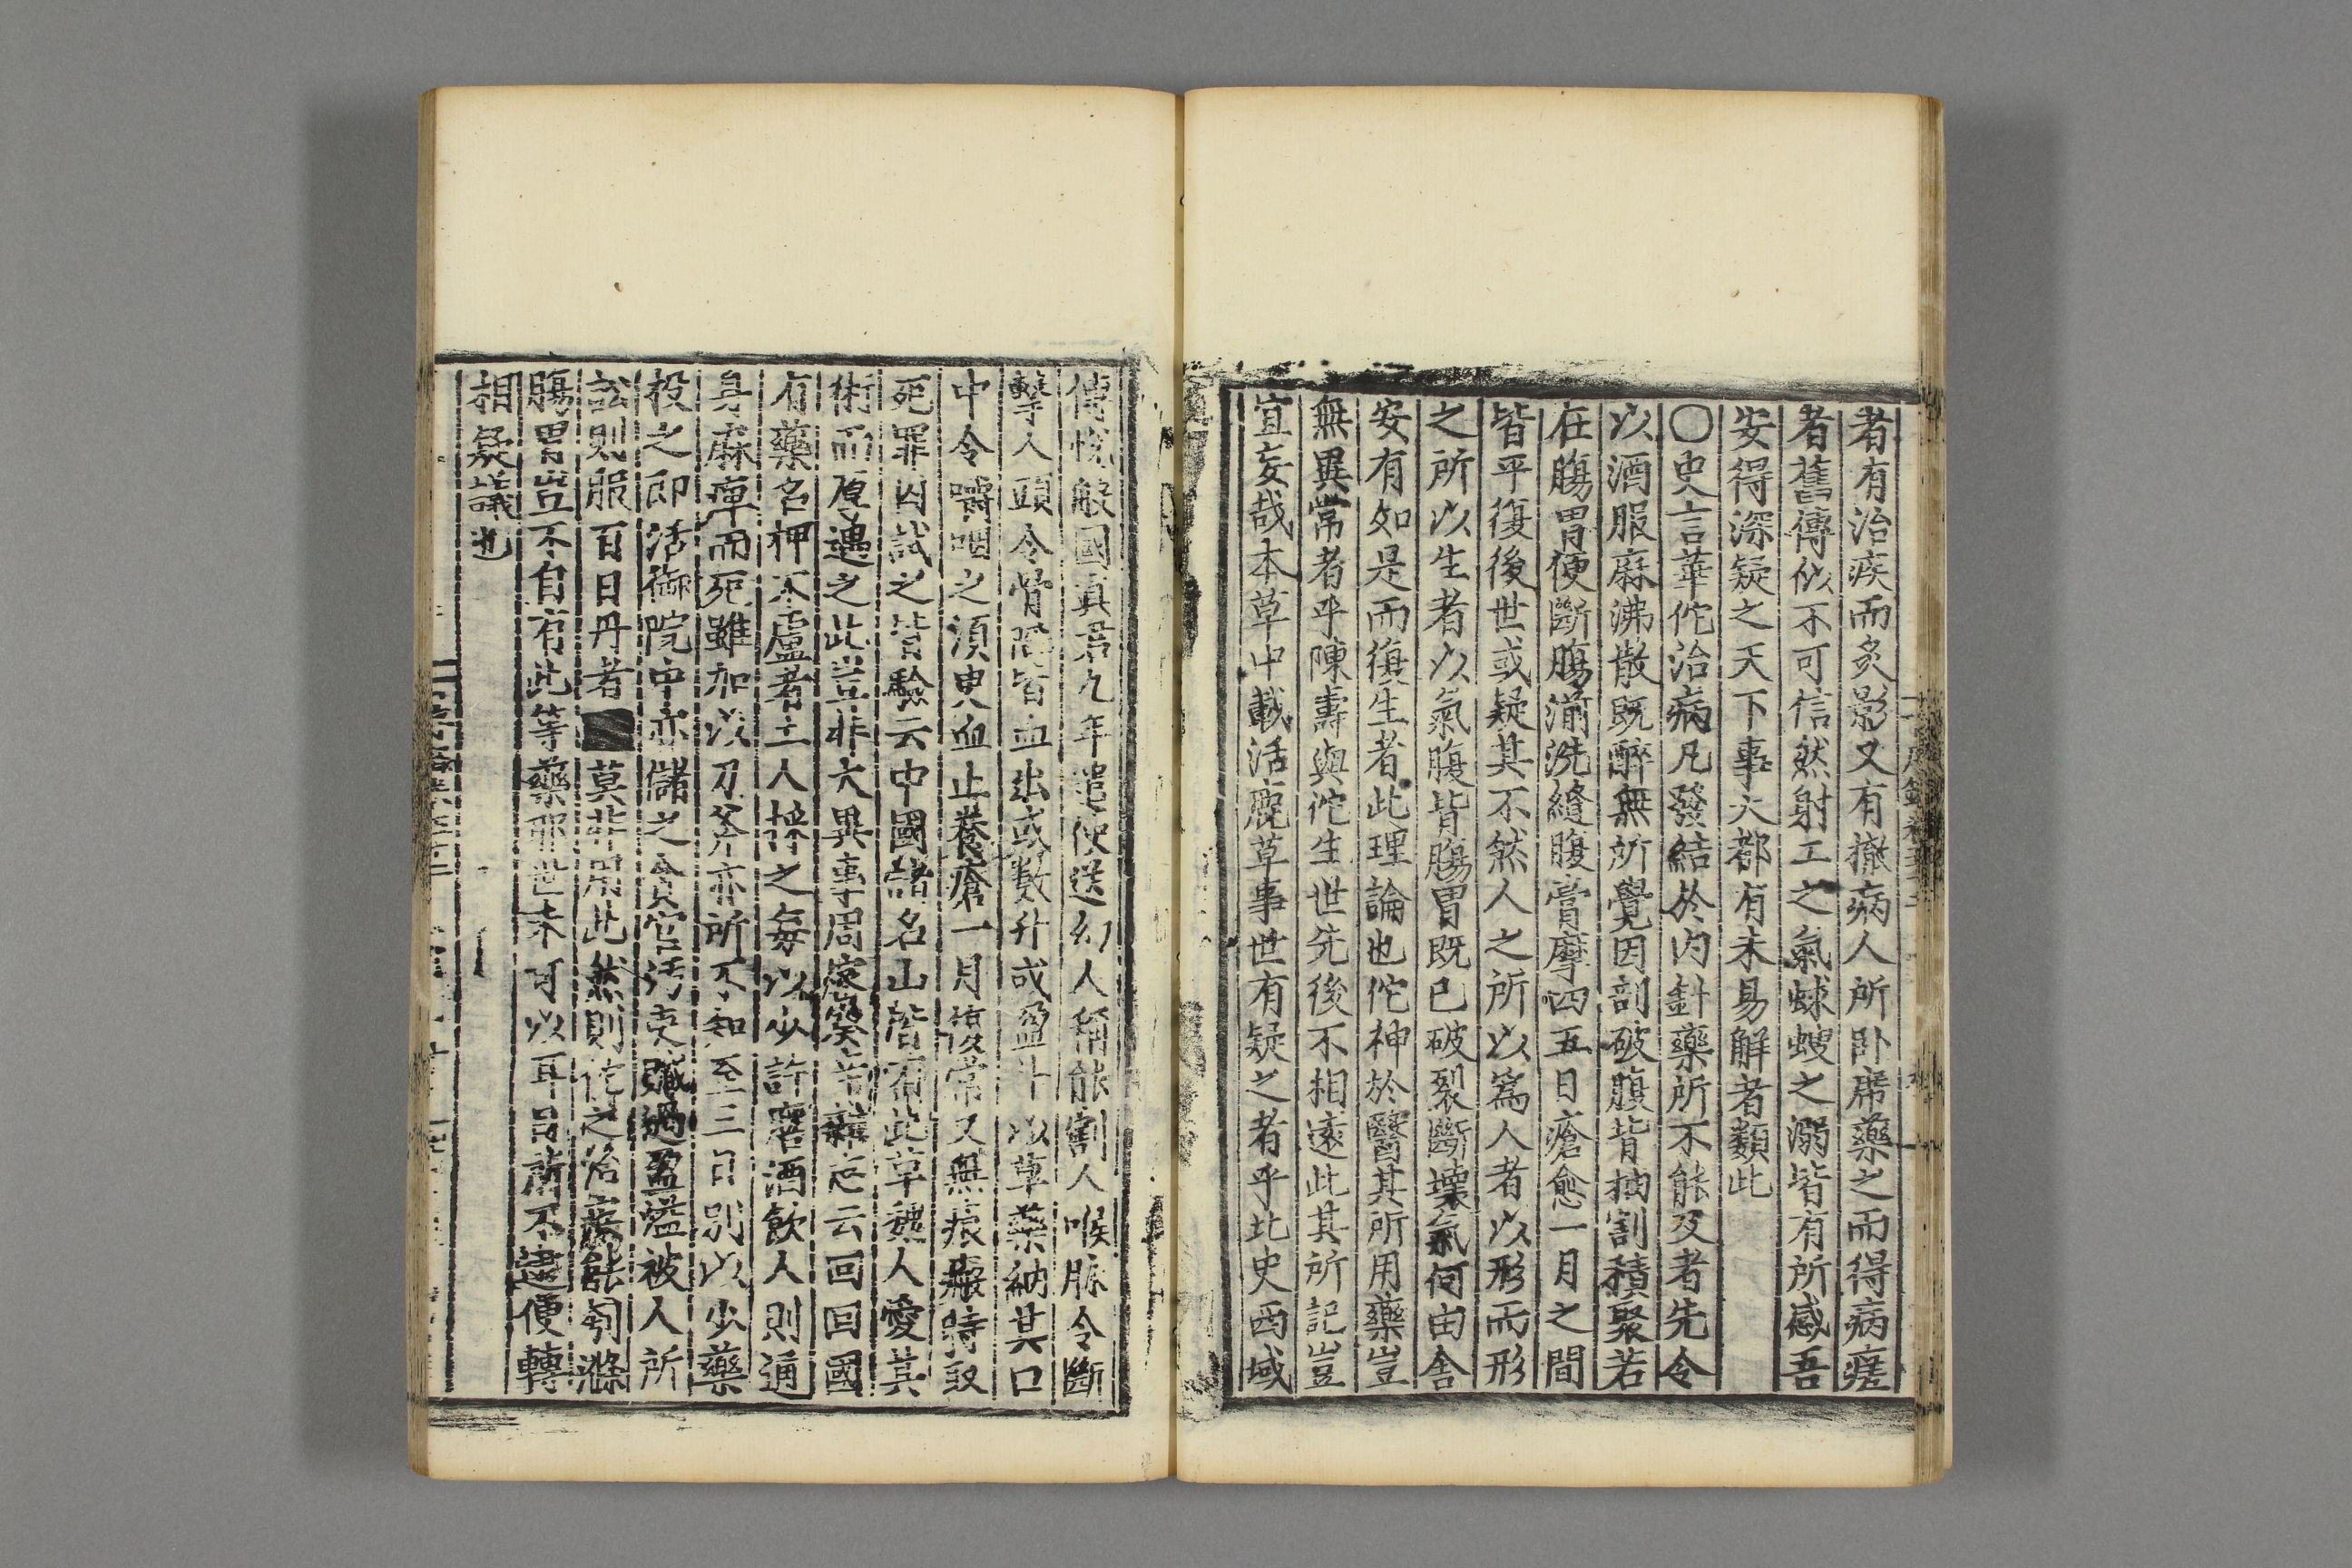 者有治疾而灸影又有撤病人所臥席藥之而得病瘥
者舊傳似不可信然射工之氣蛷螋之溺皆有所感吾
安得深疑之天下事大都有未易解者類此
〇史言華佗治病凡發結於內針藥所不能及者先令
以酒服麻沸散既醉無所覺因剖破腹背抽割積聚若
在腸胃便斷腸湔洗縫腹膏摩四五日瘡愈一月之間
皆平復後世或疑其不然人之所以為人者以形而形
之所以生者以氣腹背腸胃既已破裂斷壞氣何由舍
安有如是而復生者此理論也佗神於醫其所用藥豈
無異常者乎陳壽與佗生世先後不相遠此其所記豈
宜妄哉本草中載活鹿草事世有疑之者乎北史西域
傳悅般國真君九年遣使送幻人稱能割人喉脉令斷
擊人頭令骨陷皆血出或數升或盈斗以草藥納其口
中令嚼咽之須臾血止養瘡一月復常又無痕瘢特
死罪囚試之皆驗云中國諸名山皆有此草魏人愛其
術而厚遇之此豈非大異事周密癸辛雜志云回回國
有藥名押不盧者土人採之每以少許磨酒飲人則通
身麻痺而死雖加以刀斧亦所不知至三日別以少藥
投之即活御院中亦儲之貪官汚吏贓過盈溢被人所
訟則服百日丹者莫非用此然則佗之治疾能刳滌
腸胃豈不自有此等藥耶世未可以耳目所不逮便轉
相疑議也